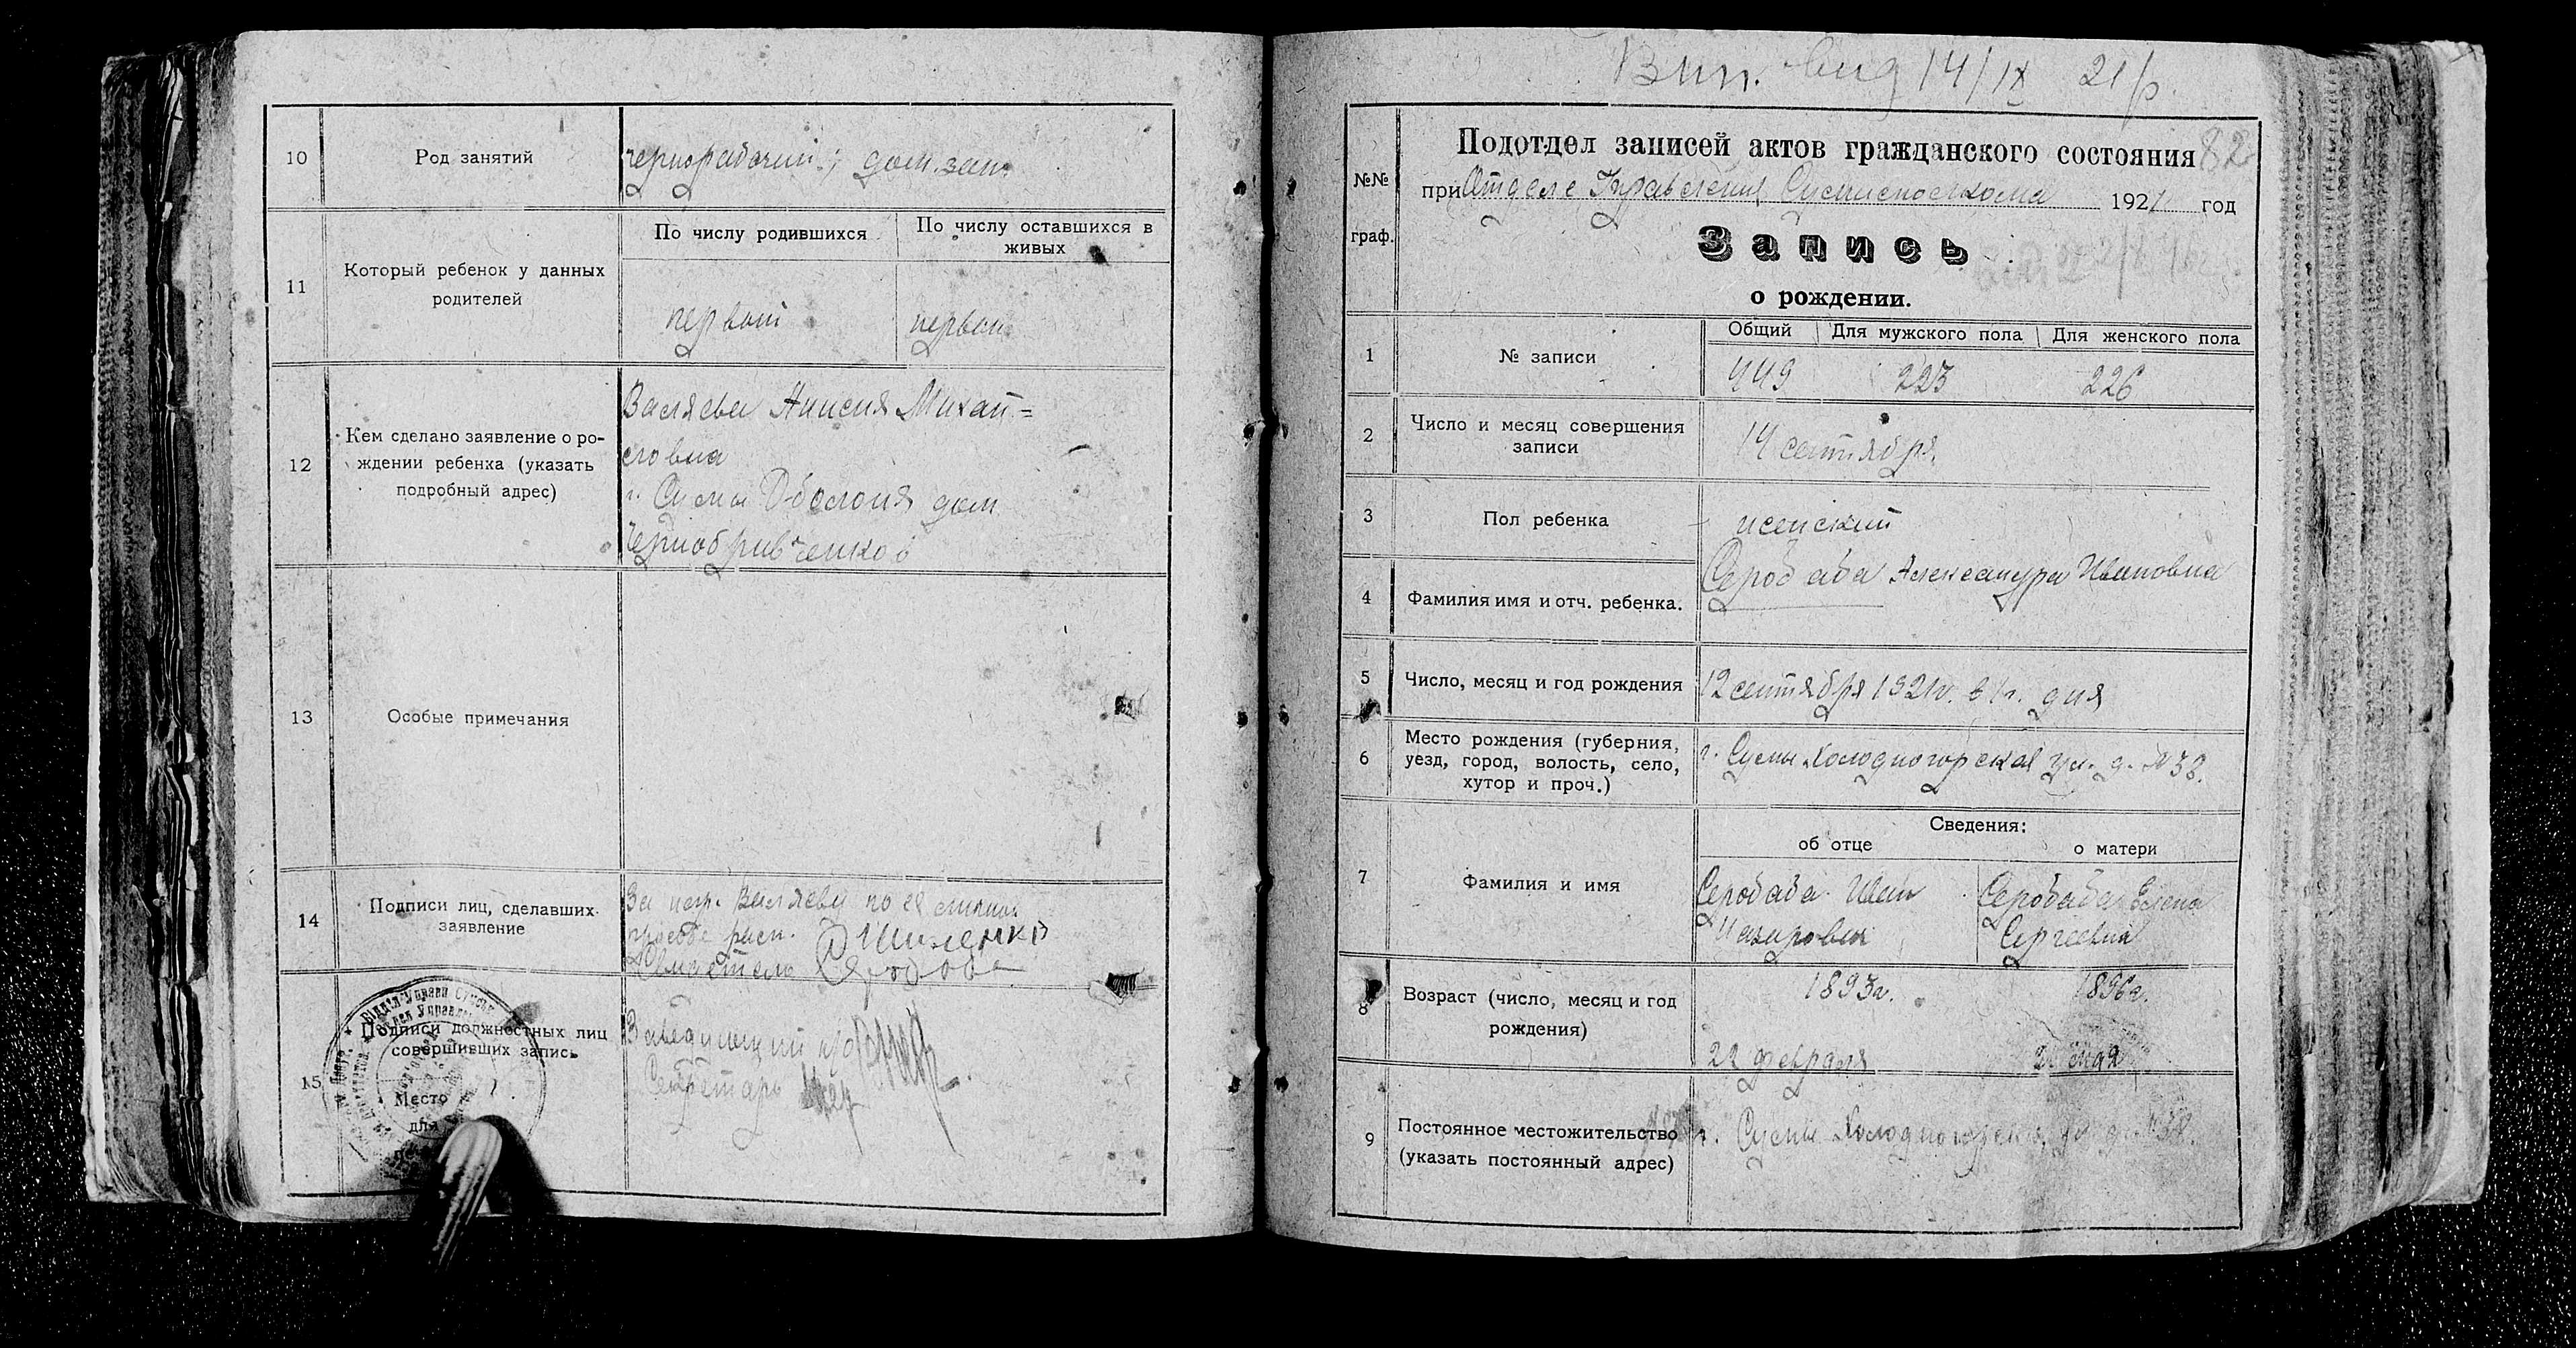 10
Род занятий
чернорабочий; дом. зан.
11
Который ребенок у данных
родителей
По числу родившихся
По числу оставшихся в
живых
первый
первый
12
Кем сделано заявление о ро-
ждении ребенка (указать
подробный адрес)
Валяева Анисия Михай=
ловна
г. Сумы Оболоня дом
Чернобривченков
13
Особые примечания
14
Подписи лиц, сделавших
заявление
За негр. Валяеву по ее личной
просьбе расп.
15
Подписи должностных лиц
совершивших запись
Место
для
Заведующий п/о
Секретарь
Вип. вид 14/IX 21 р.
82
№№
граф.
Подотдел записей актов гражданского состояния
при Отделе Управления Сумисполкома 1921 год
Запись
о рождении.
1
№ записи
Общий Для мужского пола Для женского пола
449 223 226
2
Число и месяц совершения
записи
14 сентября
3
Пол ребенка
женский
4
Фамилия имя и отч. ребенка.
Серобаба Александра Ивановна
5
Число, месяц и год рождения
12 сентября 1921 г. в 1 ч. дня
6
Место рождения (губерния,
уезд, город, волость, село,
хутор и проч.)
г. Сумы Холодногорская ул. д. №38.
7
Фамилия и имя
Сведения:
об отце
о матери
Серобаба Иван
Назарович
Серобаба Елена
Сергеевна
8
Возраст (число, месяц и год
рождения)
1893 г.
22 февраля
1896 г.
мая
9
Постоянное местожительство
(указать постоянный адрес)
г. Сумы Холодногорская ул. д. №38.